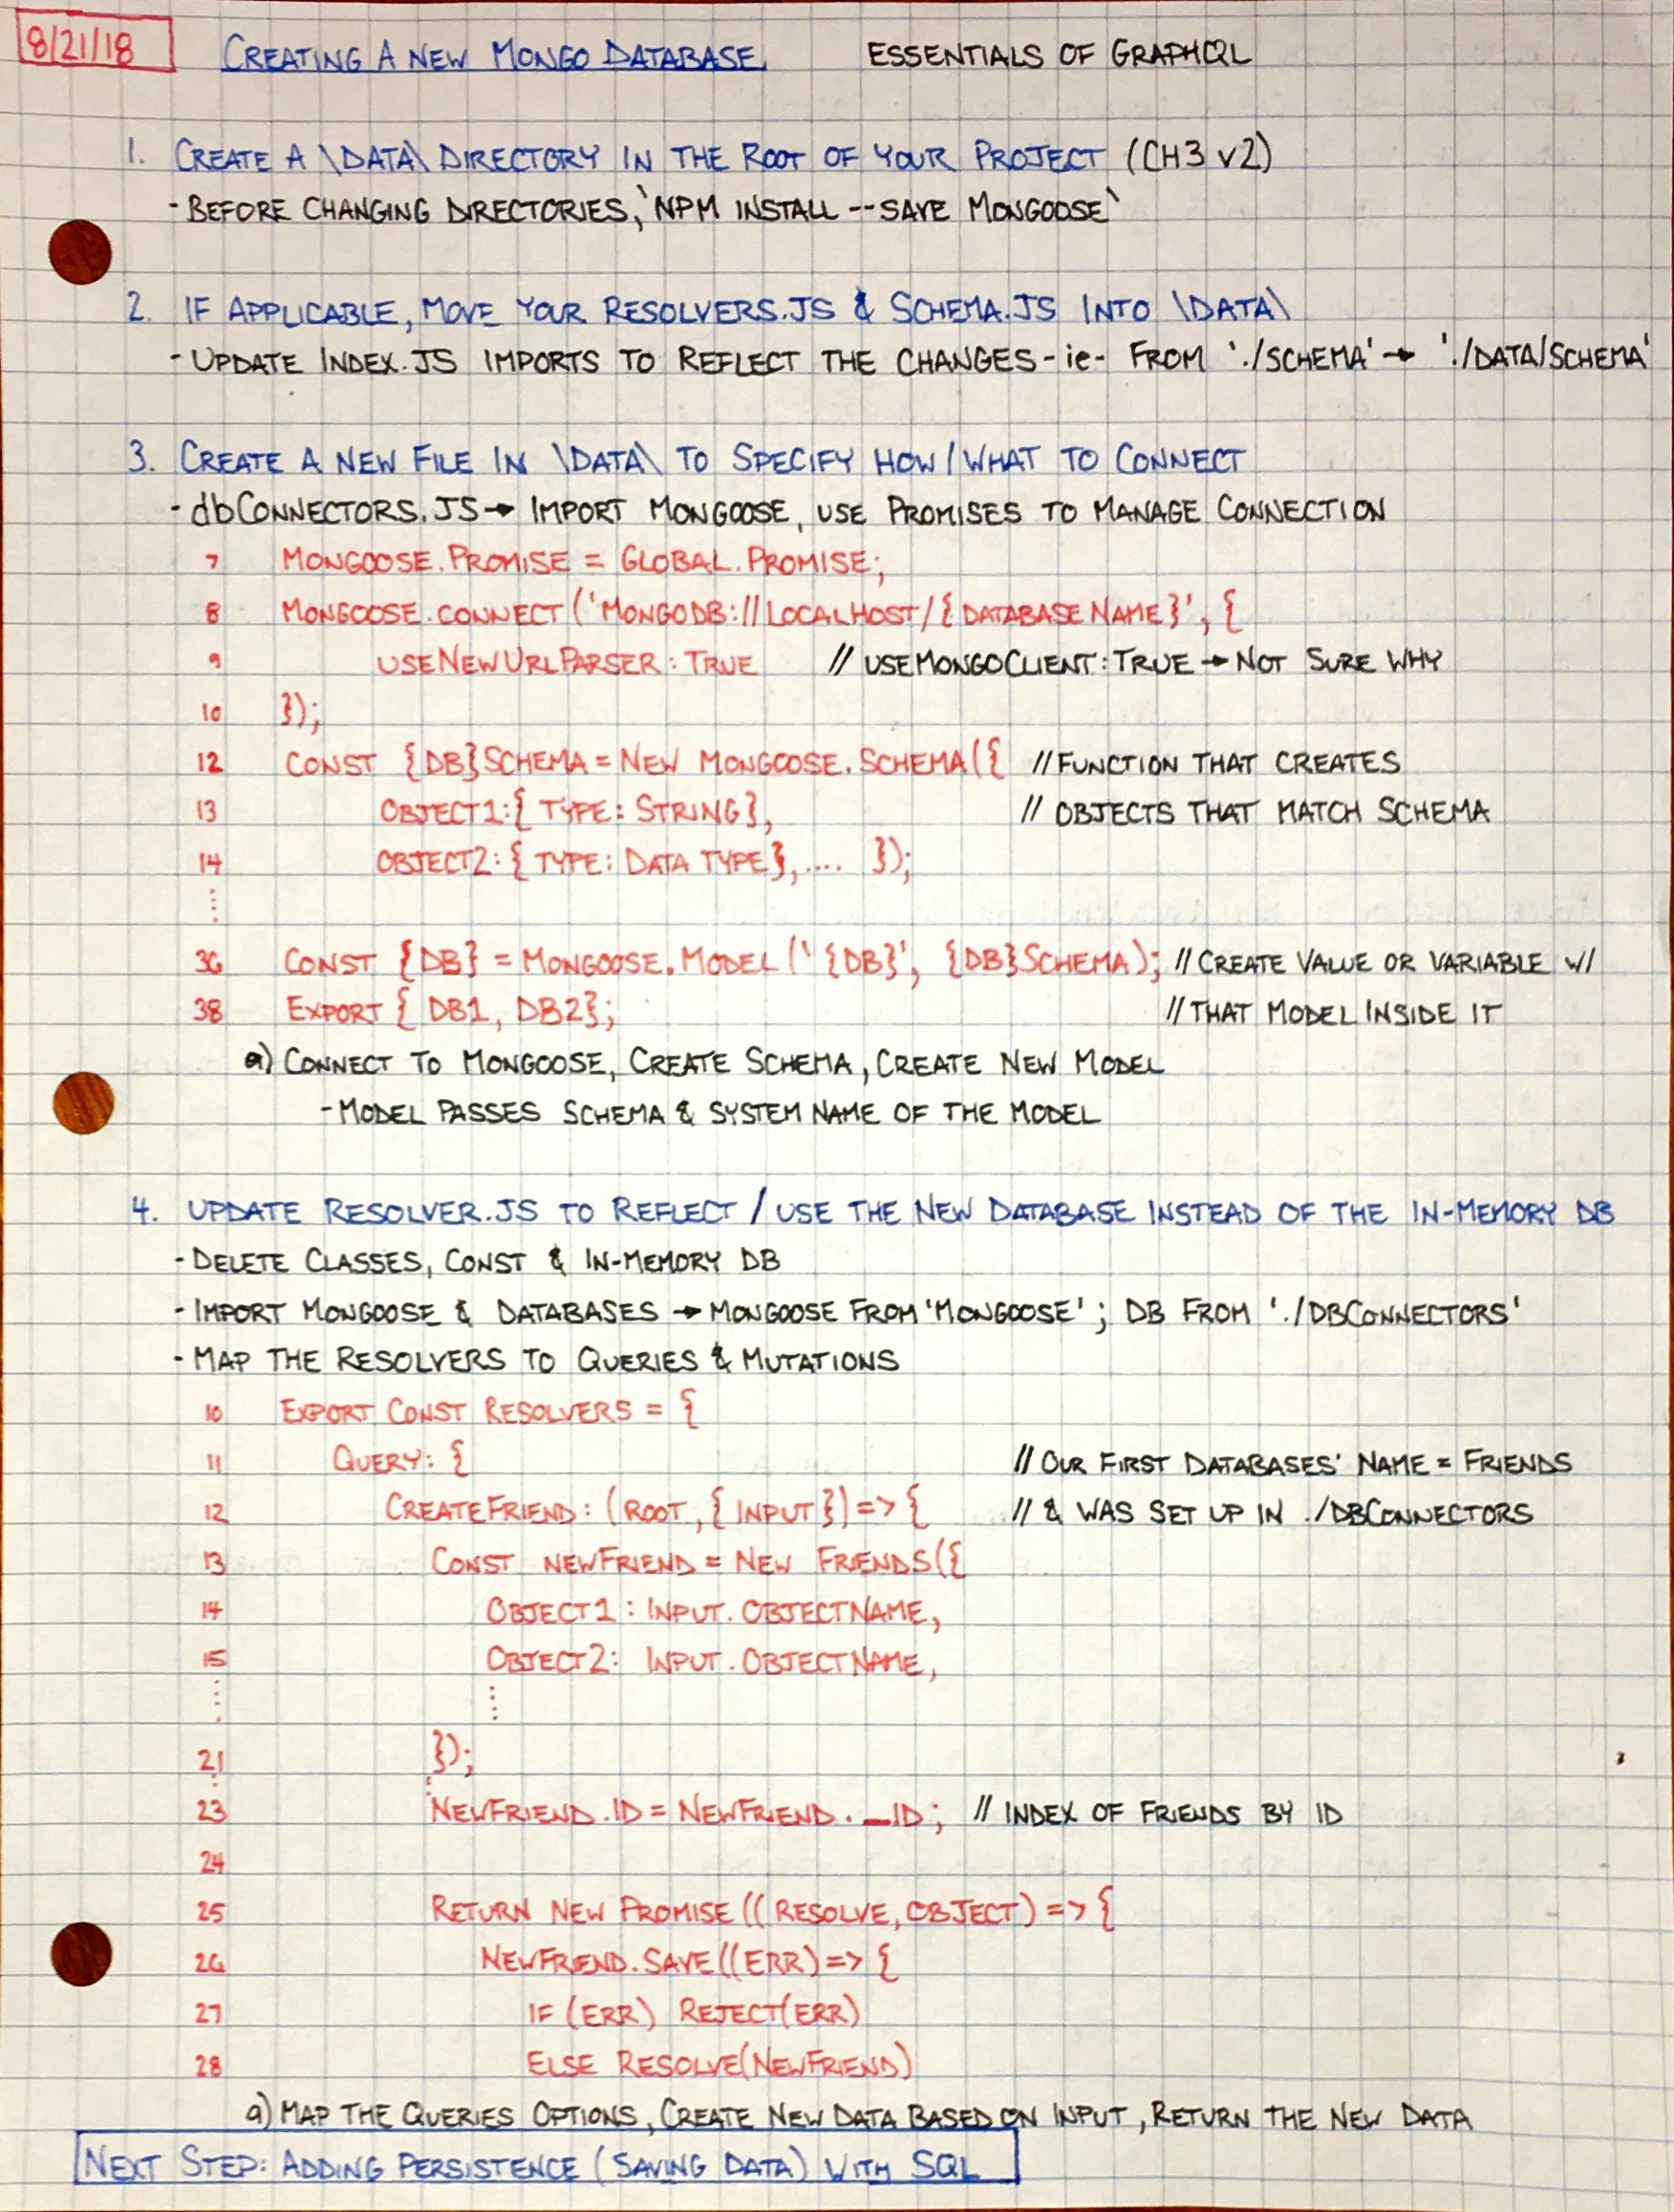 8/21/18 CREATING A NEW MONGO DATABASE ESSENTIALS OF GRAPHQL
1. CREATE A \DATA\ DIRECTORY IN THE ROOT OF YOUR PROJECT (CH3 v2)
- BEFORE CHANGING DIRECTORIES, `NPM INSTALL --SAVE MONGOOSE`
2. IF APPLICABLE, MOVE YOUR RESOLVERS.JS & SCHEMA.JS INTO \DATA\
- UPDATE INDEX.JS IMPORTS TO REFLECT THE CHANGES - ie - FROM './SCHEMA' → './DATA/SCHEMA'
3. CREATE A NEW FILE IN \DATA\ TO SPECIFY HOW/WHAT TO CONNECT
- dbCONNECTORS.JS → IMPORT MONGOOSE, USE PROMISES TO MANAGE CONNECTION
7 MONGOOSE.PROMISE = GLOBAL.PROMISE;
8 MONGOOSE.CONNECT('MONGODB://LOCALHOST/{DATABASE NAME}', {
9 USENEWURLPARSER: TRUE // USEMONGOCLIENT: TRUE → NOT SURE WHY
10 });
12 CONST {DB}SCHEMA = NEW MONGOOSE.SCHEMA({ // FUNCTION THAT CREATES
13 OBJECT1: { TYPE: STRING}, // OBJECTS THAT MATCH SCHEMA
14 OBJECT2: { TYPE: DATA TYPE}, .... });
36 CONST {DB} = MONGOOSE.MODEL('{DB}', {DB}SCHEMA); // CREATE VALUE OR VARIABLE W/
38 EXPORT { DB1, DB2}; // THAT MODEL INSIDE IT
a) CONNECT TO MONGOOSE, CREATE SCHEMA, CREATE NEW MODEL
- MODEL PASSES SCHEMA & SYSTEM NAME OF THE MODEL
4. UPDATE RESOLVER.JS TO REFLECT / USE THE NEW DATABASE INSTEAD OF THE IN-MEMORY DB
- DELETE CLASSES, CONST & IN-MEMORY DB
- IMPORT MONGOOSE & DATABASES → MONGOOSE FROM 'MONGOOSE'; DB FROM './DBCONNECTORS'
- MAP THE RESOLVERS TO QUERIES & MUTATIONS
10 EXPORT CONST RESOLVERS = {
11 QUERY: { // OUR FIRST DATABASES' NAME = FRIENDS
12 CREATEFRIEND: (ROOT, { INPUT }) => { // & WAS SET UP IN ./DBCONNECTORS
13 CONST NEWFRIEND = NEW FRIENDS({
14 OBJECT1: INPUT.OBJECTNAME,
15 OBJECT2: INPUT.OBJECTNAME,
21 });
23 NEWFRIEND.ID = NEWFRIEND._ID; // INDEX OF FRIENDS BY ID
24
25 RETURN NEW PROMISE((RESOLVE, OBJECT) => {
26 NEWFRIEND.SAVE((ERR) => {
27 IF (ERR) REJECT(ERR)
28 ELSE RESOLVE(NEWFRIEND)
a) MAP THE QUERIES OPTIONS, CREATE NEW DATA BASED ON INPUT, RETURN THE NEW DATA
NEXT STEP: ADDING PERSISTENCE (SAVING DATA) WITH SQL